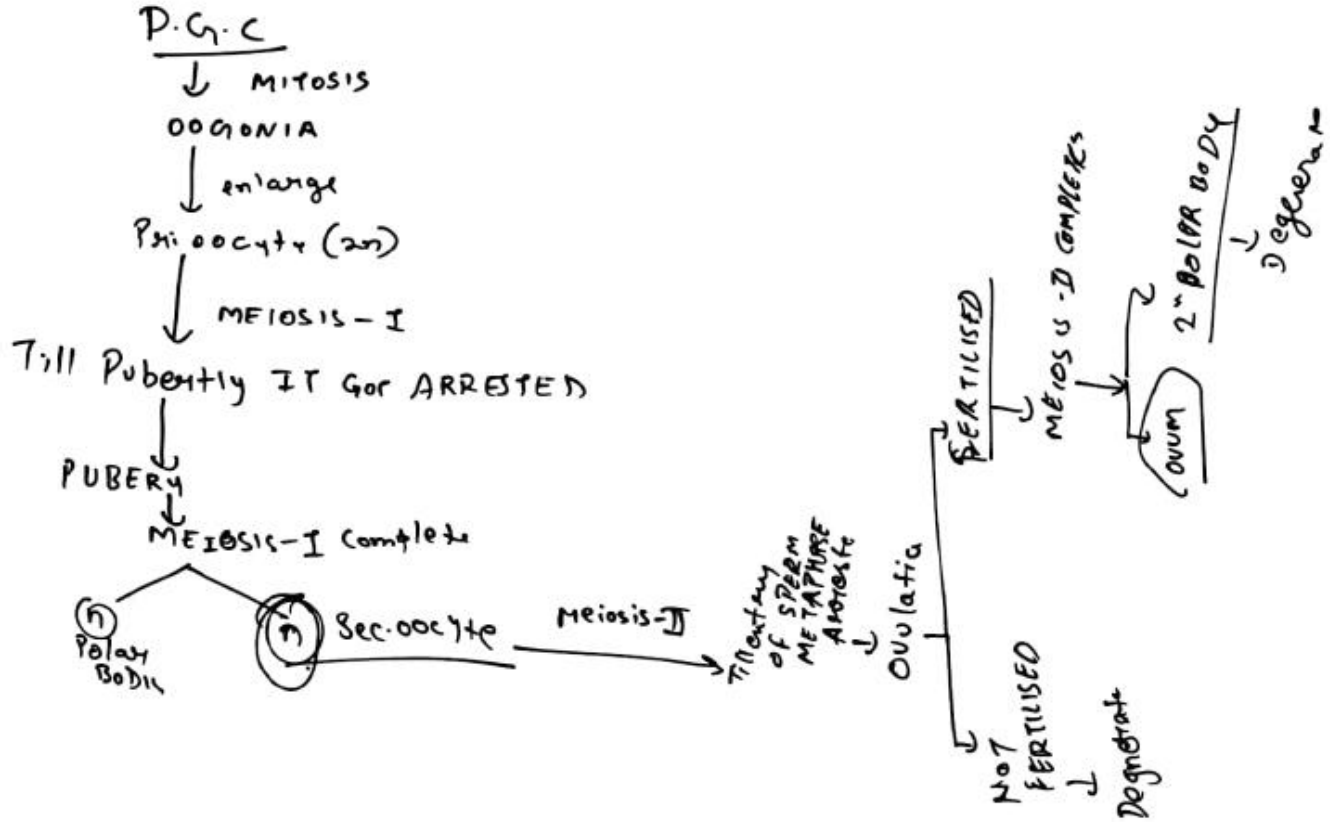 P.G.C
MITOSIS
OOGONIA
enlarge
Pri oocyte (2n)
MEIOSIS-I
Till Pubertly IT Got ARRESTED
PUBERY
MEIOSIS-I Complete
n
Polar
BODIES
n
Sec.oocyte
Meiosis-II
Till entery
of SPERM
METAPHASE
Ovulatio
FERTILISED
MEIOSIS-II COMPLETES
2nd POLAR BODY
Degenerate
OVUM
NOT
FERTILISED
Degnerate